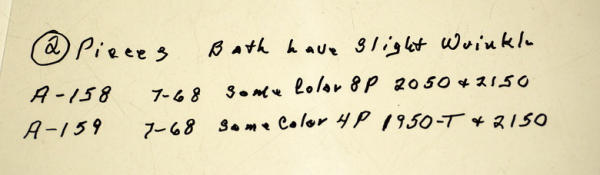 ② Pieces Both have Slight Wrinkle
A-158 7-68 Same Color 8P 2050 & 2150
A-159 7-68 Same Color 4P 1950-T & 2150